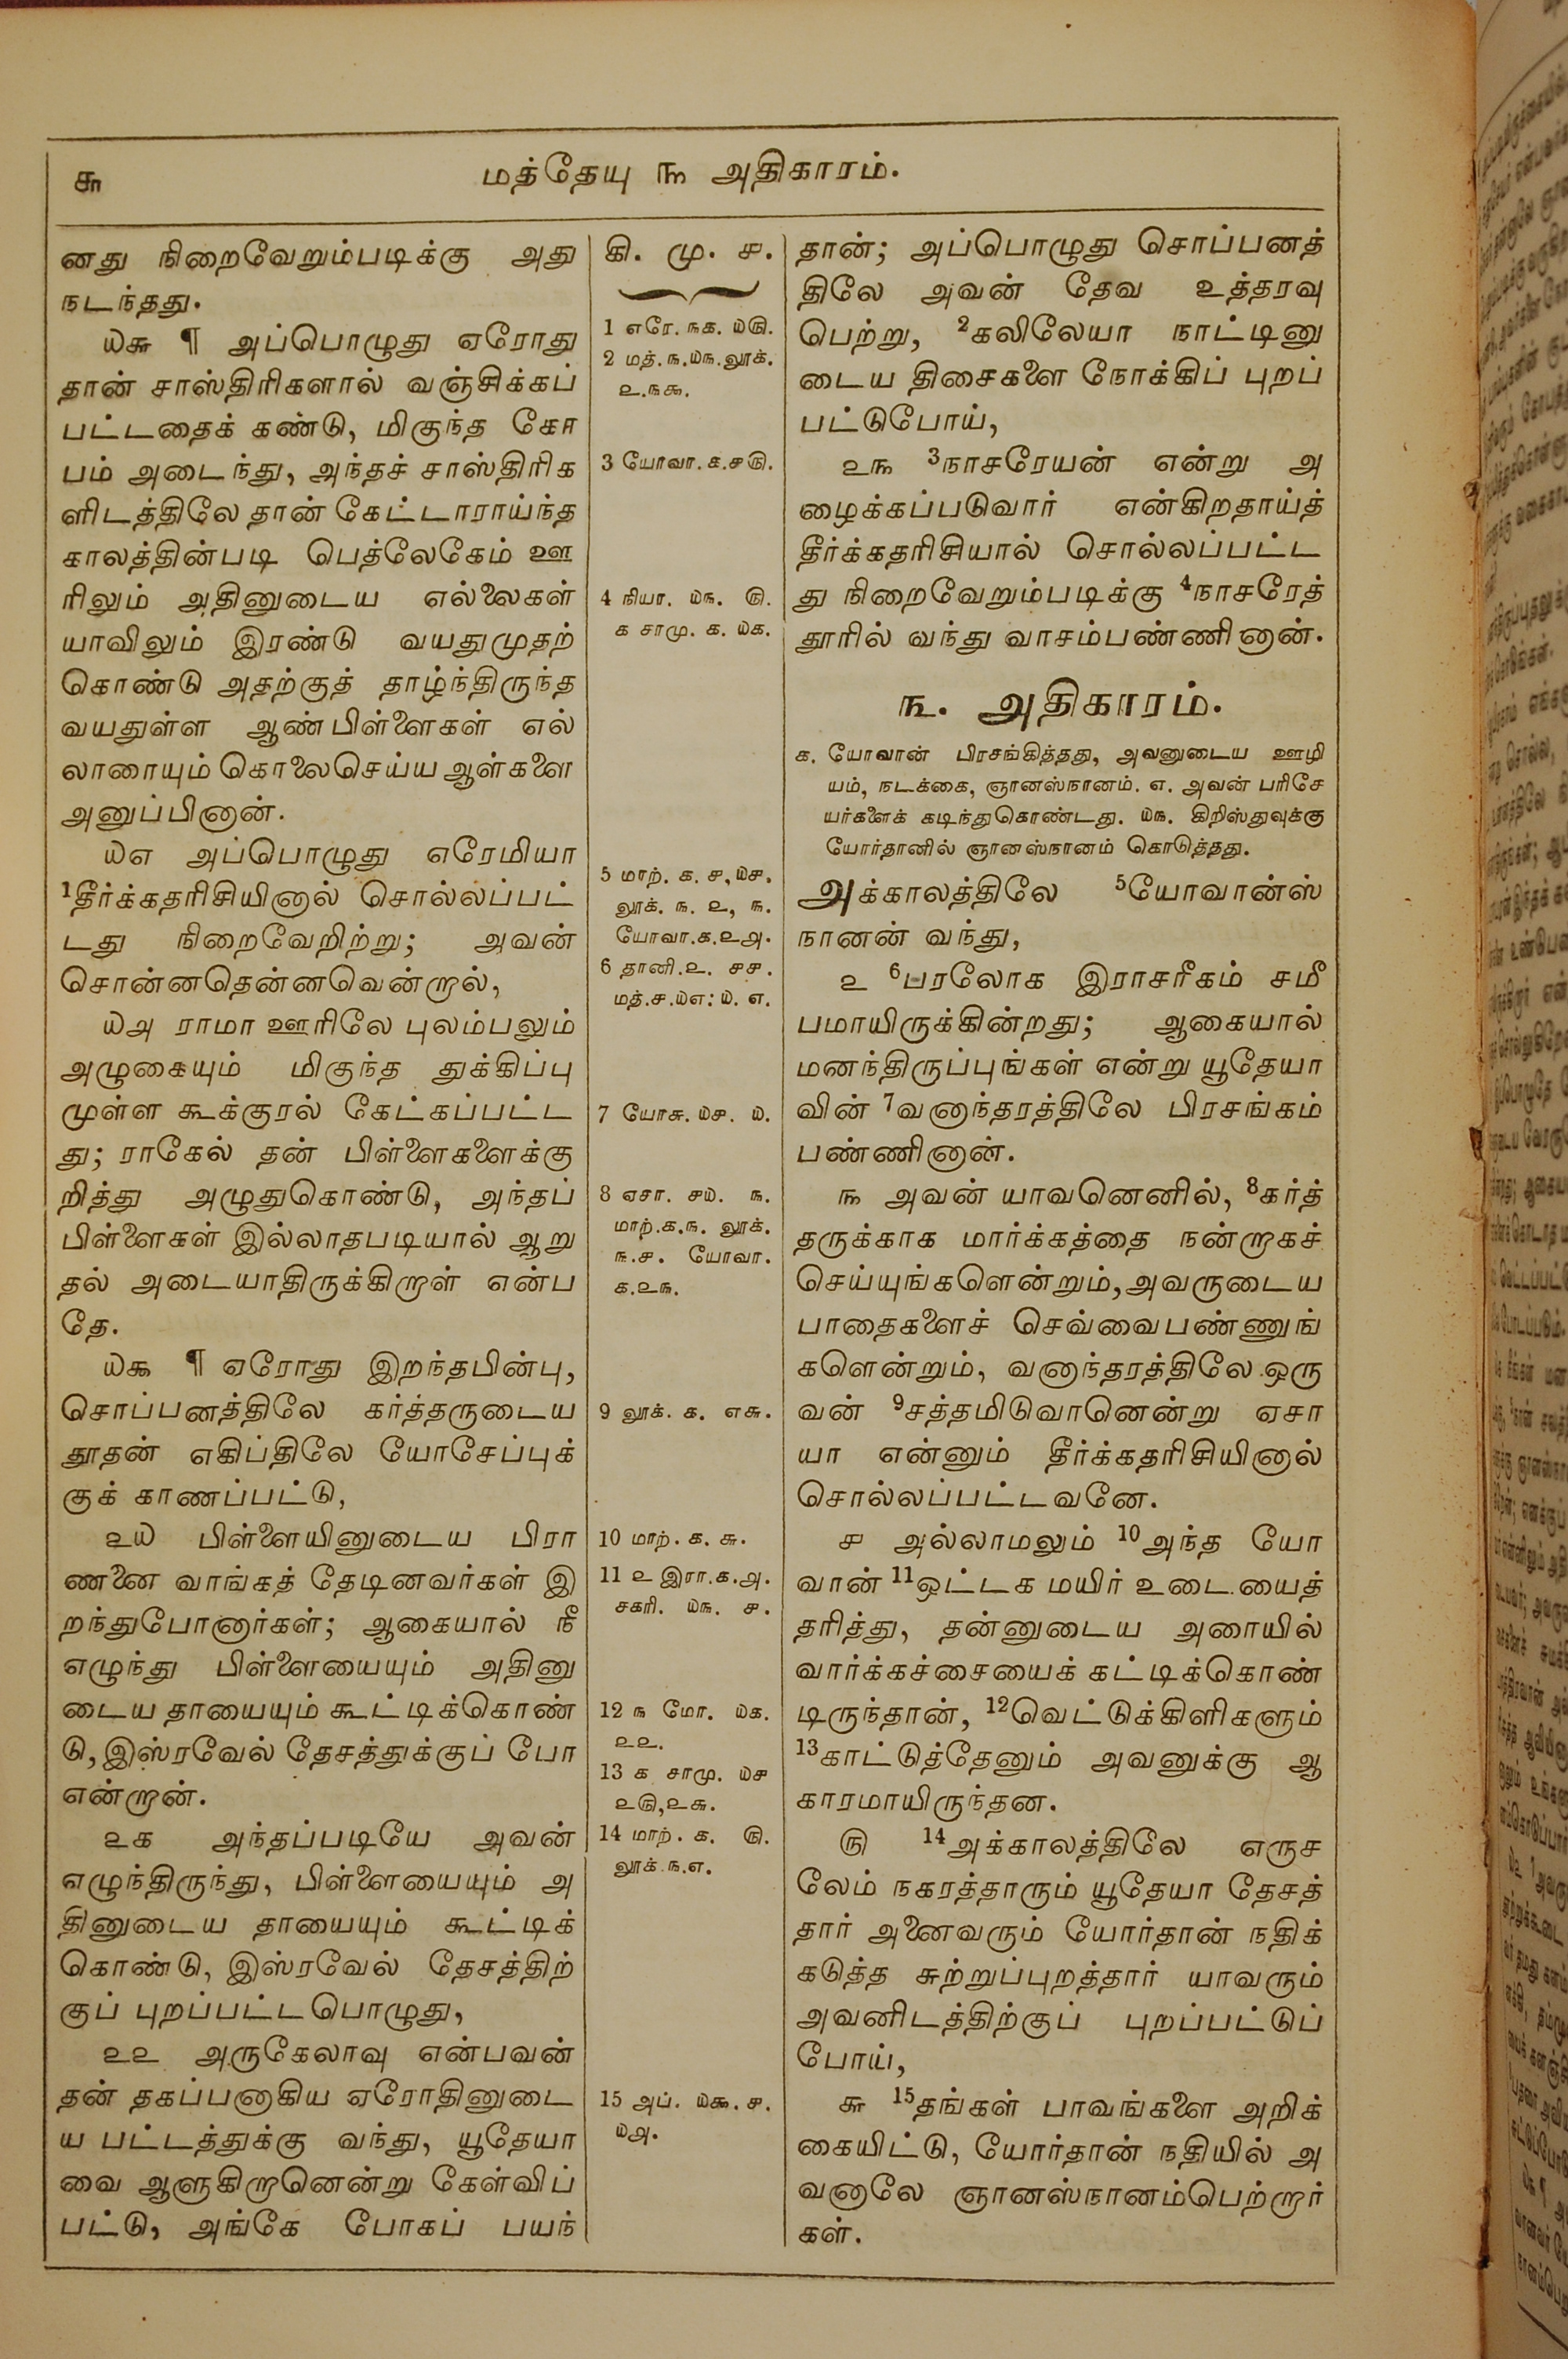 ௬
மத்தேயு ௩ அதிகாரம்.
னது நிறைவேறும்படிக்கு அது
நடந்தது.
௰௬ ¶ அப்பொழுது ஏரோது
தான் சாஸ்திரிகளால் வஞ்சிக்கப்
பட்டதைக் கண்டு, மிகுந்த கோ
பம் அடைந்து, அந்தச் சாஸ்திரிக
ளிடத்திலே தான் கேட்டாராய்ந்த
காலத்தின்படி பெத்லேகேம் ஊ
ரிலும் அதினுடைய எல்லைகள்
யாவிலும் இரண்டு வயதுமுதற்
கொண்டு அதற்குத் தாழ்ந்திருந்த
வயதுள்ள ஆண்பிள்ளைகள் எல்
லாரையும் கொலைசெய்ய ஆள்களை
அனுப்பினான்.
௰௭ அப்பொழுது எரேமியா
1தீர்க்கதரிசியினால் சொல்லப்பட்
டது நிறைவேறிற்று; அவன்
சொன்னதென்னவென்றால்,
௰௮ ராமா ஊரிலே புலம்பலும்
அழுகையும் மிகுந்த துக்கிப்பு
முள்ள கூக்குரல் கேட்கப்பட்ட
து; ராகேல் தன் பிள்ளைகளைக்கு
றித்து அழுதுகொண்டு, அந்தப்
பிள்ளைகள் இல்லாதபடியால் ஆறு
தல் அடையாதிருக்கிறாள் என்ப
தே.
௰௯ ¶ ஏரோது இறந்தபின்பு,
சொப்பனத்திலே கர்த்தருடைய
தூதன் எகிப்திலே யோசேப்புக்
குக் காணப்பட்டு,
௨௰ பிள்ளையினுடைய பிரா
ணனை வாங்கத் தேடினவர்கள் இ
றந்துபோனார்கள்; ஆகையால் நீ
எழுந்து பிள்ளையையும் அதினு
டைய தாயையும் கூட்டிக்கொண்
டு, இஸ்ரவேல் தேசத்துக்குப் போ
என்றான்.
௨௧ அந்தப்படியே அவன்
எழுந்திருந்து, பிள்ளையையும் அ
தினுடைய தாயையும் கூட்டிக்
கொண்டு, இஸ்ரவேல் தேசத்திற்
குப் புறப்பட்டபொழுது,
௨௨ அருகேலாவு என்பவன்
தன் தகப்பனாகிய ஏரோதினுடை
ய பட்டத்துக்கு வந்து, யூதேயா
வை ஆளுகிறானென்று கேள்விப்
பட்டு, அங்கே போகப் பயந்
கி. மு. ௪.
1 எரே. ௩௧. ௰௫.
2 மத். ௩.௰௩.லூக்.
௨.௩௯.
3 யோவா.௧.௪௫.
4 நியா. ௰௩. ௫.
௧ சாமு. ௧. ௰௧.
5 மாற். ௧. ௪, ௰௪.
லூக். ௩. ௨, ௩.
யோவா.௧.௨௮.
6 தானி.௨. ௪௪.
மத்.௪.௰௭: ௰. ௭.
7 யோசு. ௰௪. ௰.
8 ஏசா. ௪௰. ௩.
மாற்.௧.௩. லூக்.
௩.௪. யோவா.
௧.௨௩.
9 லூக். ௧. ௭௬.
10 மாற். ௧. ௬.
11 ௨ இரா.௧.௮.
சகரி. ௰௩. ௪.
12 ௩ மோ. ௰௧.
௨௨.
13 ௧ சாமு. ௰௪
௨௫,௨௬.
14 மாற். ௧. ௫.
லூக்.௩.௭.
15 அப். ௰௯. ௪.
௰௮.
தான்; அப்பொழுது சொப்பனத்
திலே அவன் தேவ உத்தரவு
பெற்று, 2கலிலேயா நாட்டினு
டைய திசைகளை நோக்கிப் புறப்
பட்டுபோய்,
௨௩ 3நாசரேயன் என்று அ
ழைக்கப்படுவார் என்கிறதாய்த்
தீர்க்கதரிசியால் சொல்லப்பட்ட
து நிறைவேறும்படிக்கு 4நாசரேத்
தூரில் வந்து வாசம்பண்ணினான்.
௩. அதிகாரம்.
௧. யோவான் பிரசங்கித்தது, அவனுடைய ஊழி
யம், நடக்கை, ஞானஸ்நானம். ௭. அவன் பரிசே
யர்களைக் கடிந்துகொண்டது. ௰௩. கிறிஸ்துவுக்கு
யோர்தானில் ஞானஸ்நானம் கொடுத்தது.
அக்காலத்திலே 5யோவான்ஸ்
நானன் வந்து,
௨ 6பரலோக இராசரீகம் சமீ
பமாயிருக்கின்றது; ஆகையால்
மனந்திருப்புங்கள் என்று யூதேயா
வின் 7வனாந்தரத்திலே பிரசங்கம்
பண்ணினான்.
௩ அவன் யாவனெனில், 8கர்த்
தருக்காக மார்க்கத்தை நன்றாகச்
செய்யுங்களென்றும், அவருடைய
பாதைகளைச் செவ்வைபண்ணுங்
களென்றும், வனாந்தரத்திலே ஒரு
வன் 9சத்தமிடுவானென்று ஏசா
யா என்னும் தீர்க்கதரிசியினால்
சொல்லப்பட்டவனே.
௪ அல்லாமலும் 10அந்த யோ
வான் 11ஒட்டக மயிர் உடையைத்
தரித்து, தன்னுடைய அரையில்
வார்க்கச்சையைக் கட்டிக்கொண்
டிருந்தான், 12வெட்டுக்கிளிகளும்
13காட்டுத்தேனும் அவனுக்கு ஆ
காரமாயிருந்தன.
௫ 14அக்காலத்திலே எருச
லேம் நகரத்தாரும் யூதேயா தேசத்
தார் அனைவரும் யோர்தான் நதிக்
கடுத்த சுற்றுப்புறத்தார் யாவரும்
அவனிடத்திற்குப் புறப்பட்டுப்
போய்,
௬ 15தங்கள் பாவங்களை அறிக்
கையிட்டு, யோர்தான் நதியில் அ
வனாலே ஞானஸ்நானம்பெற்றார்
கள்.